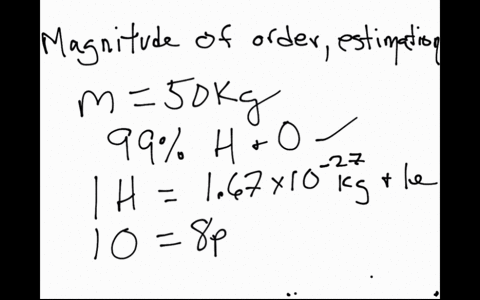 Magnitude of order, estimation
m = 50Kg
99% H + O ✓
1H = 1.67 × 10⁻²⁷ kg + 1e
1O = 8p